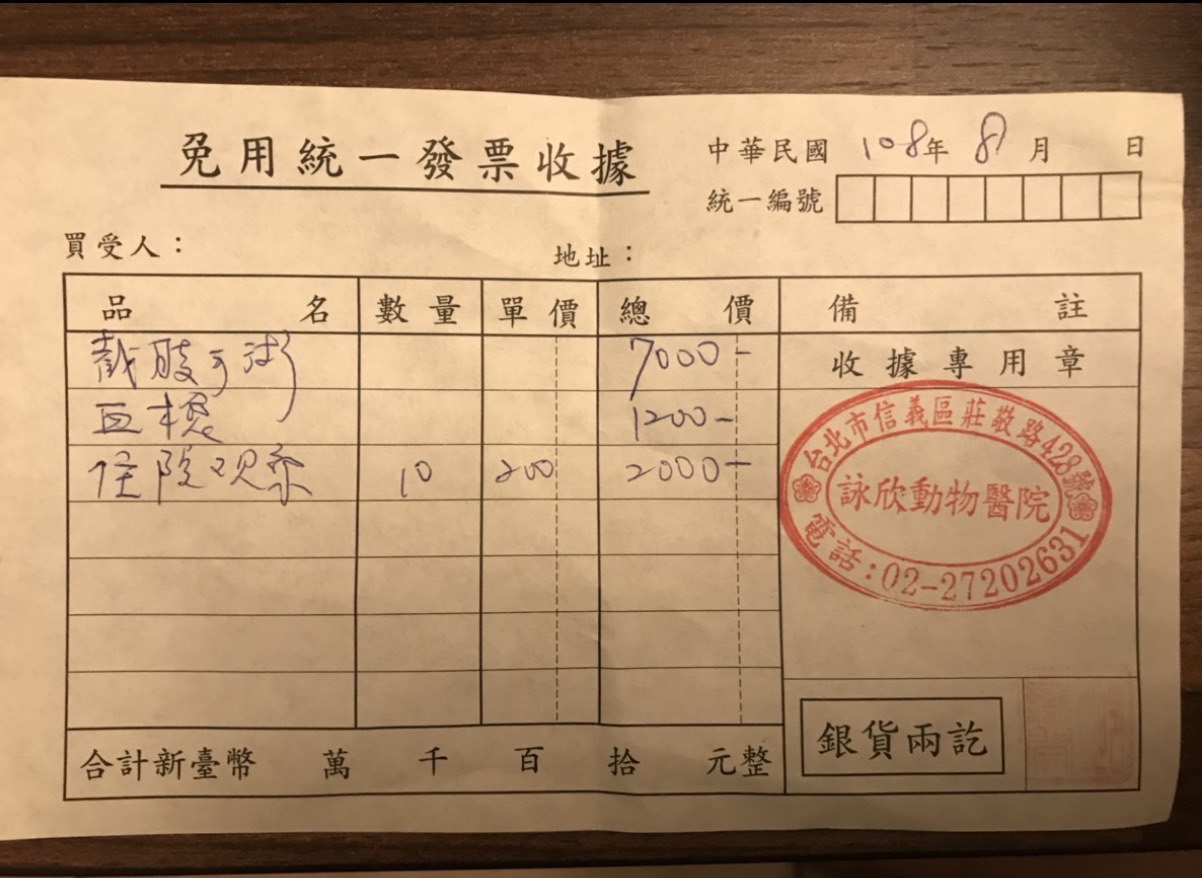 免用統一發票收據
中華民國 108年 8月 日
統一編號
買受人： 地址：
品名 數量 單價 總價 備註
收據專用章
截肢手術 7000-
血檢 1200-
住院观察 10 200 2000-
台北市信義區莊敬路428號
詠欣動物醫院
電話:02-27202631
合計新臺幣 萬 千 百 拾 元整
銀貨兩訖